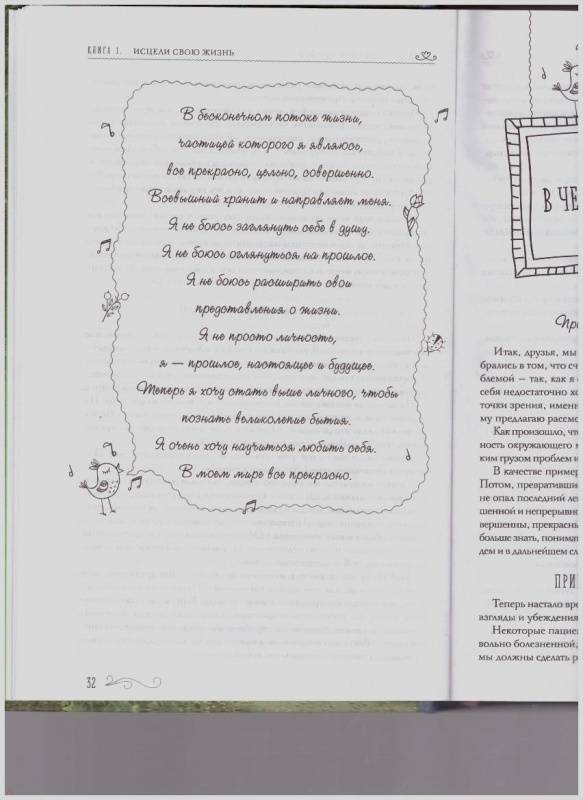 КНИГА 1. ИСЦЕЛИ СВОЮ ЖИЗНЬ
В бесконечном потоке жизни,
частицей которого я являюсь,
все прекрасно, цельно, совершенно.
Всевышний хранит и направляет меня.
Я не боюсь заглянуть себе в душу.
Я не боюсь оглянуться на прошлое.
Я не боюсь расширить свои
представления о жизни.
Я не просто личность,
я — прошлое, настоящее и будущее.
Теперь я хочу стать выше личного, чтобы
познать великолепие бытия.
Я очень хочу научиться любить себя.
В моем мире все прекрасно.
32
В ЧЕ
Пр
Итак, друзья, мы
брались в том, что сч
блемой — так, как я
себя недостаточно хо
точки зрения, именн
му предлагаю рассмо
Как произошло, чт
ность окружающего м
ким грузом проблем и
В качестве пример
Потом, превративши
не опал последний ле
шенной и непрерывно
вершенны, прекрасны
больше знать, понимат
дем и в дальнейшем сл
ПРИ
Теперь настало вре
взгляды и убеждения
Некоторые пацие
вольно болезненной,
мы должны сделать р